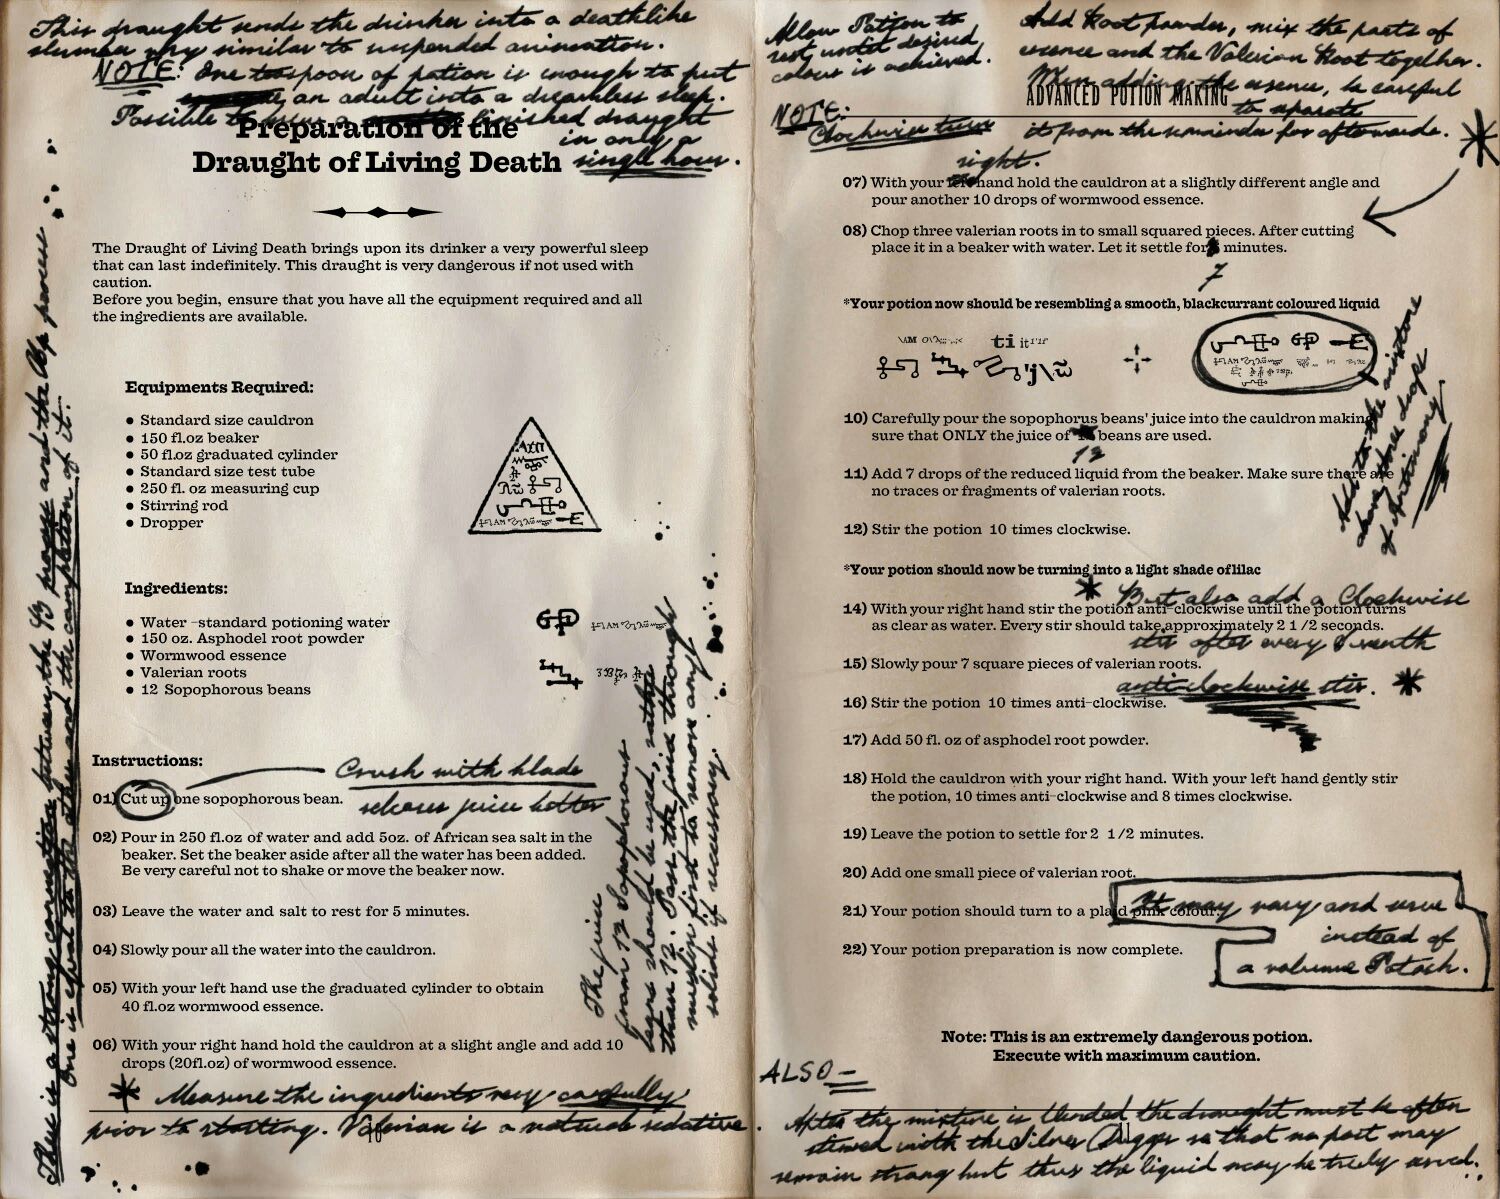 This draught sends the drinker into a deathlike
slumber very similar to suspended animation.
NOTE: One teaspoon of potion is enough to put
an adult into a dreamless sleep.
Possible to a finished draught
in only a
single hour.
Preparation of the
Draught of Living Death
The Draught of Living Death brings upon its drinker a very powerful sleep
that can last indefinitely. This draught is very dangerous if not used with
caution.
Before you begin, ensure that you have all the equipment required and all
the ingredients are available.
Equipments Required:
• Standard size cauldron
• 150 fl.oz beaker
• 50 fl.oz graduated cylinder
• Standard size test tube
• 250 fl. oz measuring cup
• Stirring rod
• Dropper
Ingredients:
• Water -standard potioning water
• 150 oz. Asphodel root powder
• Wormwood essence
• Valerian roots
• 12 Sopophorous beans
Instructions:
Crush with blade
releases juice better
01) Cut up one sopophorous bean.
02) Pour in 250 fl.oz of water and add 5oz. of African sea salt in the
beaker. Set the beaker aside after all the water has been added.
Be very careful not to shake or move the beaker now.
03) Leave the water and salt to rest for 5 minutes.
04) Slowly pour all the water into the cauldron.
05) With your left hand use the graduated cylinder to obtain
40 fl.oz wormwood essence.
06) With your right hand hold the cauldron at a slight angle and add 10
drops (20fl.oz) of wormwood essence.
* Measure the ingredients very carefully
prior to starting. Valerian is a natural sedative.
There is a strong connection between the process and the process
one is equal to the other and the completion of it.
The juice
from 12 Sopophorous
beans should be used, rather
than 12. Pass the juice through
muslin first to remove any
solids if necessary.
Allow Potion to
rest until desired
colour is achieved.
NOTE:
Clockwise turn
Add Root powder, mix the parts of
essence and the Valerian Root together.
When adding the essence, be careful
to separate
it from the remainder for afterwards.
ADVANCED POTION MAKING
right.
07) With your left hand hold the cauldron at a slightly different angle and
pour another 10 drops of wormwood essence.
08) Chop three valerian roots in to small squared pieces. After cutting
place it in a beaker with water. Let it settle for minutes.
7
*Your potion now should be resembling a smooth, blackcurrant coloured liquid
Add to the mixture
three drops
of Antimony
10) Carefully pour the sopophorus beans' juice into the cauldron making
sure that ONLY the juice of beans are used.
13
11) Add 7 drops of the reduced liquid from the beaker. Make sure there are
no traces or fragments of valerian roots.
12) Stir the potion 10 times clockwise.
*Your potion should now be turning into a light shade of lilac
* But also add a Clockwise
stir after every seventh
anti-clockwise stir. *
14) With your right hand stir the potion anti-clockwise until the potion turns
as clear as water. Every stir should take approximately 2 1/2 seconds.
15) Slowly pour 7 square pieces of valerian roots.
16) Stir the potion 10 times anti-clockwise.
17) Add 50 fl. oz of asphodel root powder.
18) Hold the cauldron with your right hand. With your left hand gently stir
the potion, 10 times anti-clockwise and 8 times clockwise.
19) Leave the potion to settle for 2 1/2 minutes.
20) Add one small piece of valerian root.
21) Your potion should turn to a plaid pink colour.
It may vary and
instead of
a volume Potash.
22) Your potion preparation is now complete.
Note: This is an extremely dangerous potion.
Execute with maximum caution.
ALSO –
After the mixture is blended the draught must be often
stirred with the Silver Dagger so that no part may
remain strong but thus the liquid may be truly